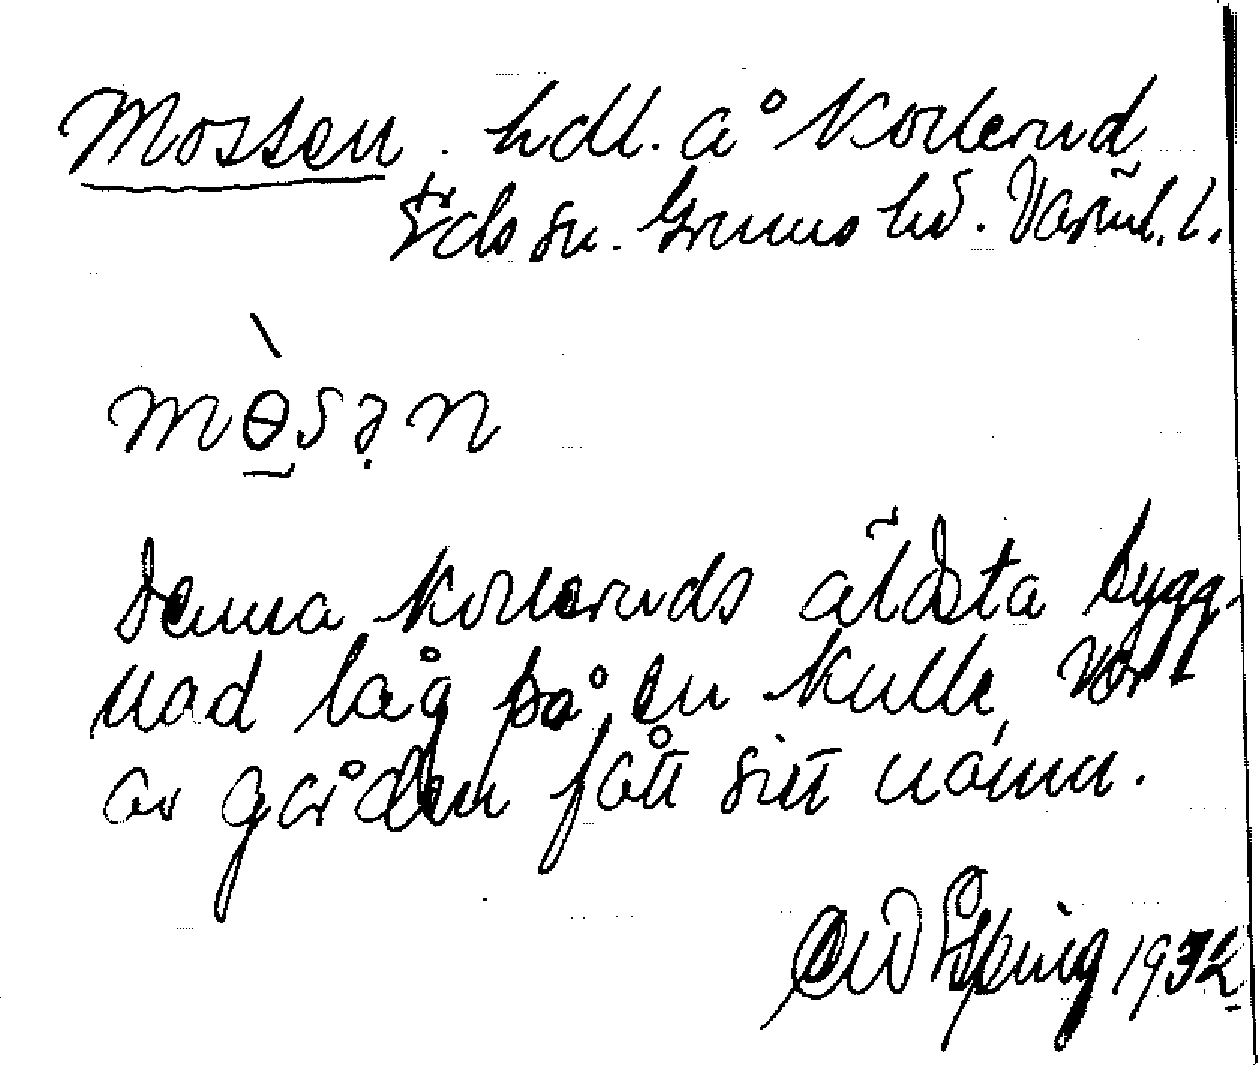 Mossen. hdl. å Kollerud
Eds sn. Grums hd. Värml. l.
mòsən
Denna Kolleruds äldsta bygg-
nad låg på en kulle, var-
av gården fått sitt namn.
1932